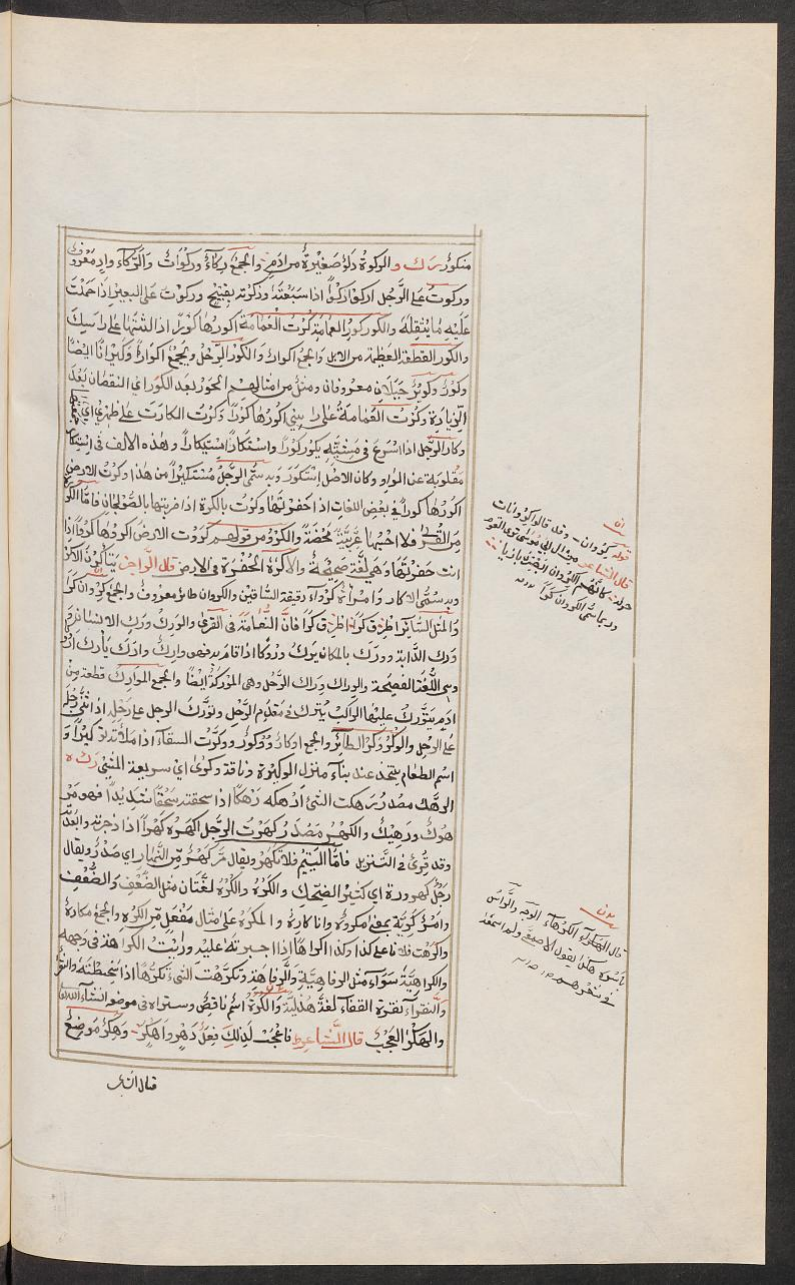 منكور رك و الركوة دلو صغيرة من ادم والجمع ركاء وركوات والركاء واد معروف
وركوت على الرجل اركو ركوا اذا سبعته وذكرته بقبيح وركوت على البعير اذا حملت
عليه ما يثقله والكور كور العمامة كرت العمامة اكورها كورا اذا لثتها على راسك
والكور القطعة العظيمة من الابل والجمع اكوار والكور الرحل ويجمع اكوارا وكيرانا ايضا
وكور وكوير جبلان معروفان ومثل من امثالهم الحور بعد الكور اي النقصان بعد
الزيادة وكرت العمامة على راسي اكورها كورا وكرت الكارة على ظهري اي
وكار الرجل اذا اسرع في مشيته يكور كورا واستكار استيكارا وهذه الالف في استكار
مقلوبة عن الواو وكان الاصل استكور وبه سمي الرجل مستكيرا من هذا وكرت الارض
اكورها كورا في بعض اللغات اذا حفرتها وكرت بالكرة اذا ضربتها بالصولجان فاما الكور
من فلا احسبها عربية محضة والكرو من قولهم كروت الارض اكروها كروا اذا
انت حفرتها وهي لغة صحيحة والاكرة الحفرة في الارض قال الراجز يتأكرن الاكر
وبه سمي الاكار وامراة كرواء دقيقة الساقين والكروان طائر معروف والجمع كروان
والمثل السائر اطرق كرا اطرق كرا فان النعامة في القرى والورك ورك الانسان
ورك الدابة وورك بالمكان يرك وروكا اذا قام به فهو وارك
وهي اللغة الفصيحة والوراك وراك الرحل وهي الموركة ايضا والجمع الموارك قطعة من
ادم يتورك عليها الراكب يترك في مقدم الرحل وتورك الرجل على رحله اذا ثنى رجله
على الرحل والوكر وكر الطائر والجمع اوكار ووكور ووكرت السقاء اذا ملأته
اسم الطعام يتخذ عند بناء منزل الوكيرة وناقة وكرى اي سريعة المشي رك ه
الرهك مصدر رهكت الشئ ارهكه رهكا اذا سحقته سحقا شديدا فهو مر
هوك ورهيك والكهر مصدر كهرت الرجل اكهره كهرا اذا زجرته وابعدته
وقد قرئ في التنزيل فاما اليتيم فلا تكهر ويقال مر كهر من النهار اي صدر ويقال
رجل كهرورة اي كثير الضحك والكره والكره لغتان مثل الضعف والضعف
وامور كريهة بمعنى مكروهة وانا كاره والمكره على مثال مفعل من الكره والجمع مكاره
واكرهت فلانا على كذا وكذا اكراها اذا اجبرته عليه ورايت الكراهة في وجهه
والكراهية سواء مثل الرفاهية والرفاهة وتكرهت الشئ تكرها اذا تسخطته
والنقراء نقرة القفاء لغة هذلية والكرة اسم ناقص وستراه في موضعه انشاء الله
والهكر العجب قال الشاعر فاعجب لذلك فعل دهر واهكر وهكر موضع
قال
ان
قوله كروان وقد قالوا كروانات
قال الشاعر من آل ابي موسى ترى القوم
حوله كانهم الكروان ابصرن بازيا
وربما سمي الكروان كرا
قال الهكراء الكرهاء الوجه والراس